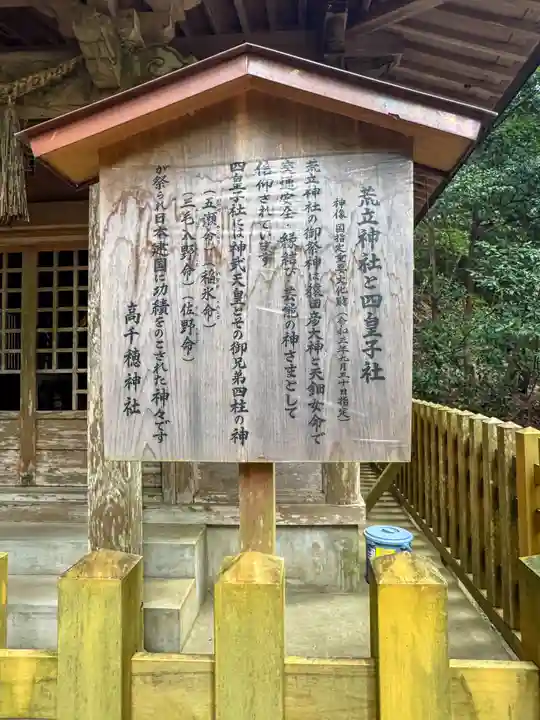 荒立神社と四皇子社
神像 国指定重要文化財(令和二年九月三十日指定)
荒立神社の御祭神は猿田彦大神と天鈿女命で
交通安全・縁結び 芸能の神さまとして
信仰されています
四皇子社には神武天皇とその御兄弟四柱の神
(五瀬命)(稲氷命)
(三毛入野命)(佐野命)
が祭られ日本建国に功績をのこされた神々です
高千穂神社